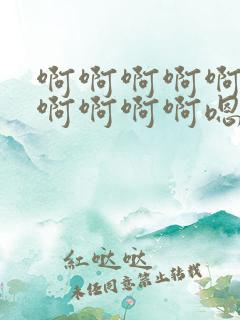 啊啊啊啊啊
啊啊啊啊嗯
红哒哒
未经同意禁止转载